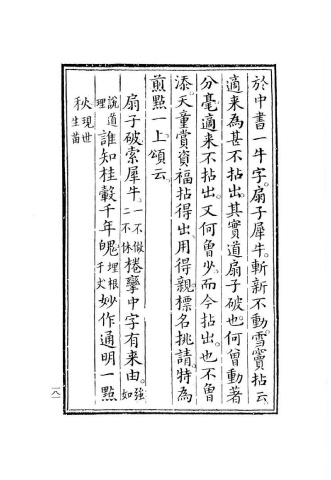 於中書一牛字。扇子犀牛。斬新不動。雪竇拈云。
適来為甚不拈出。其實道扇子破也。何曾動著
分毫。適来不拈出。又何曾少。而今拈出。也不曾
添。天童賞資福拈得出用得親。標名挑請。特為
煎點一上。頌云。
扇子破索犀牛。一不做二不休棬攣中字有来由。強如
說道理誰知桂轂千年魄埋根千丈妙作通明一點
秋現世生苗
一八